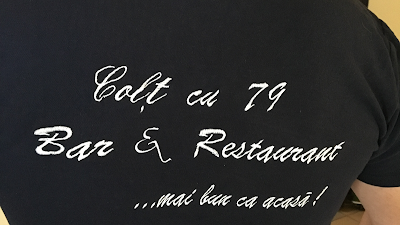 Colț cu 79
Bar & Restaurant
...mai bun ca acasă!